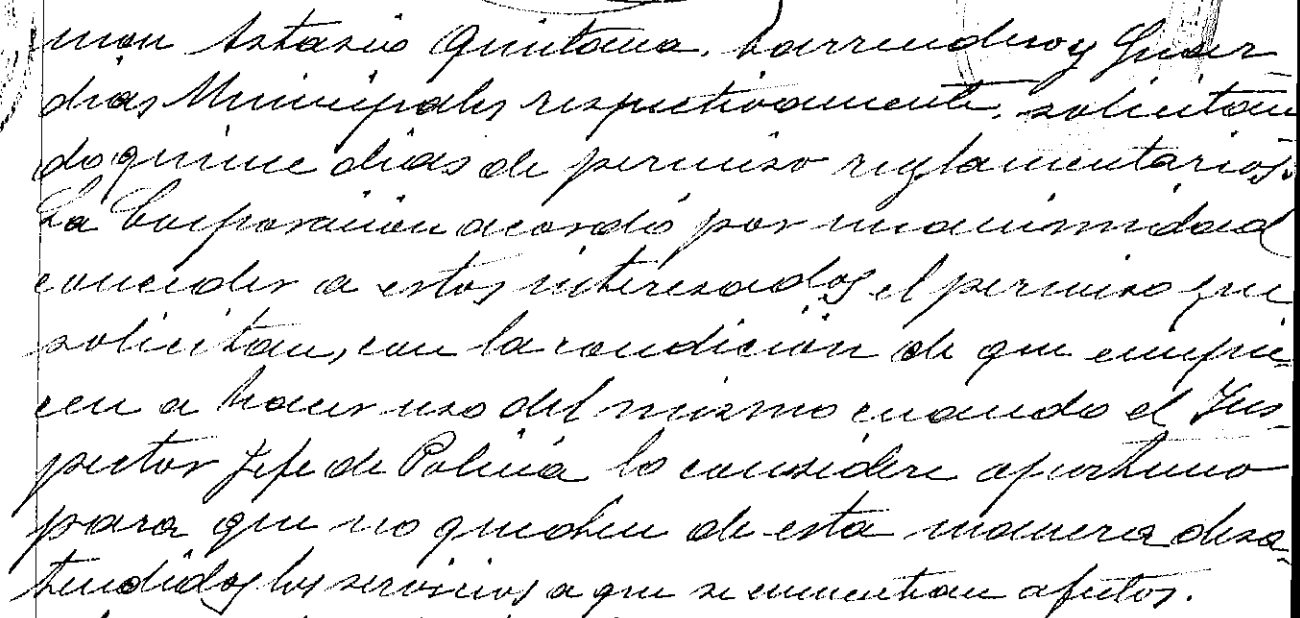 mon Astasio Quintana, barrendero y Guar
dias Municipales respectivamente, solicitan
do quince dias de permiso reglamentarios.
La Corporación acordó por unanimidad
conceder a estos interesados el permiso que
solicitan, con la condición de que empie-
cen a hacer uso del mismo cuando el Ins-
pector Jefe de Policía lo considere oportuno
para que no queden de esta manera desa-
tendidos los servicios a que se encuentran afectos.